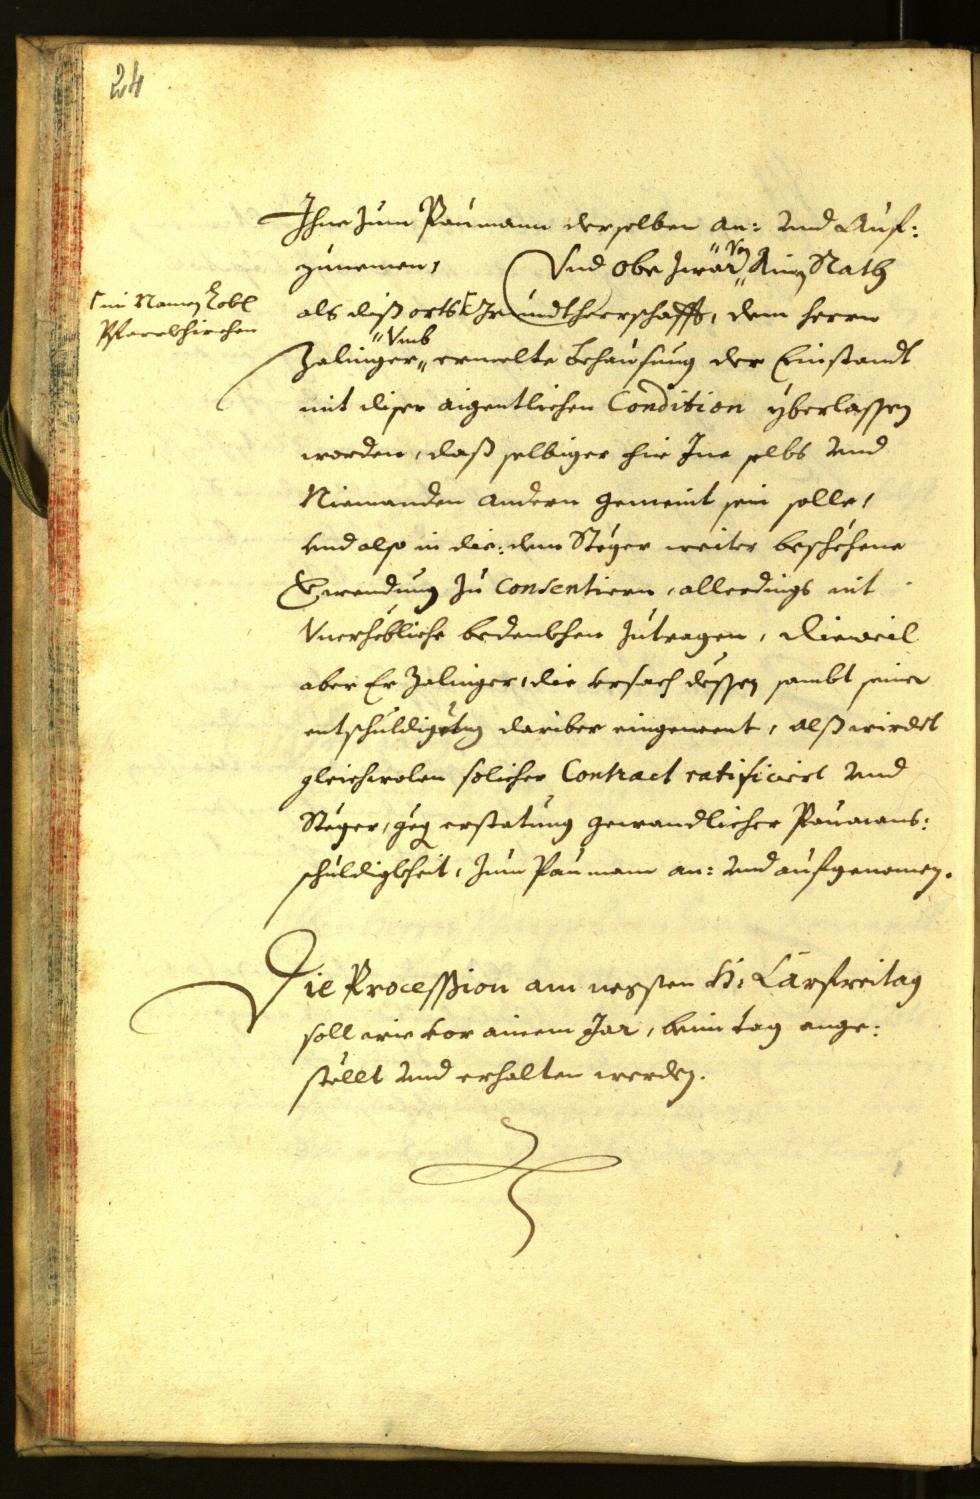 24
Ihne zum Paumann derselben an: und Auf:
zunemen, Und obe zwar "Von" Ainem Rath
als diß orts Gründtherrschafft, dem herrn
im Namen Lobl
Pfarrkhirchen
Zalinger "Vmb" ermelte Behausung der Einstandt
mit diser aigentlichen Condition yberlassen
worden, daß selbiger für Ine selbs und
Niemanden andern gemeint sein solle,
und also in die: dem Steger weiter beschehene
Erwendung zu Consentiern, allerdings nit
Vnerhebliche bedenkhen zutragen, Dieweil
aber Er Zalinger, die ursach dessen sambt seiner
entschuldigung dariber eingewent, Alß wirdet
gleichwolen solicher Contract ratificiert und
Steger, gegen erstatung gewondlicher Paumans:
schuldigkheit, zum Paumann an: und aufgenomen.
Die Procession am negsten H: Carfreitag
soll wie vor ainem Jar, beim tag ange:
stellt und erhalten werden.